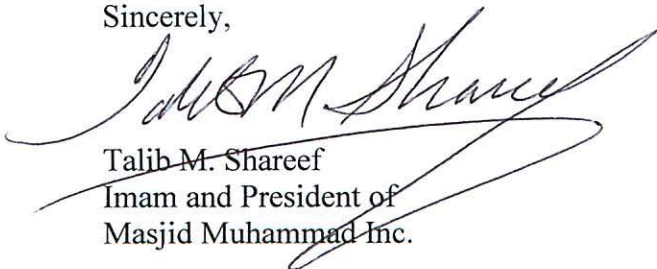 Sincerely,
Talib M. Shareef
Talib M. Shareef
Imam and President of
Masjid Muhammad Inc.